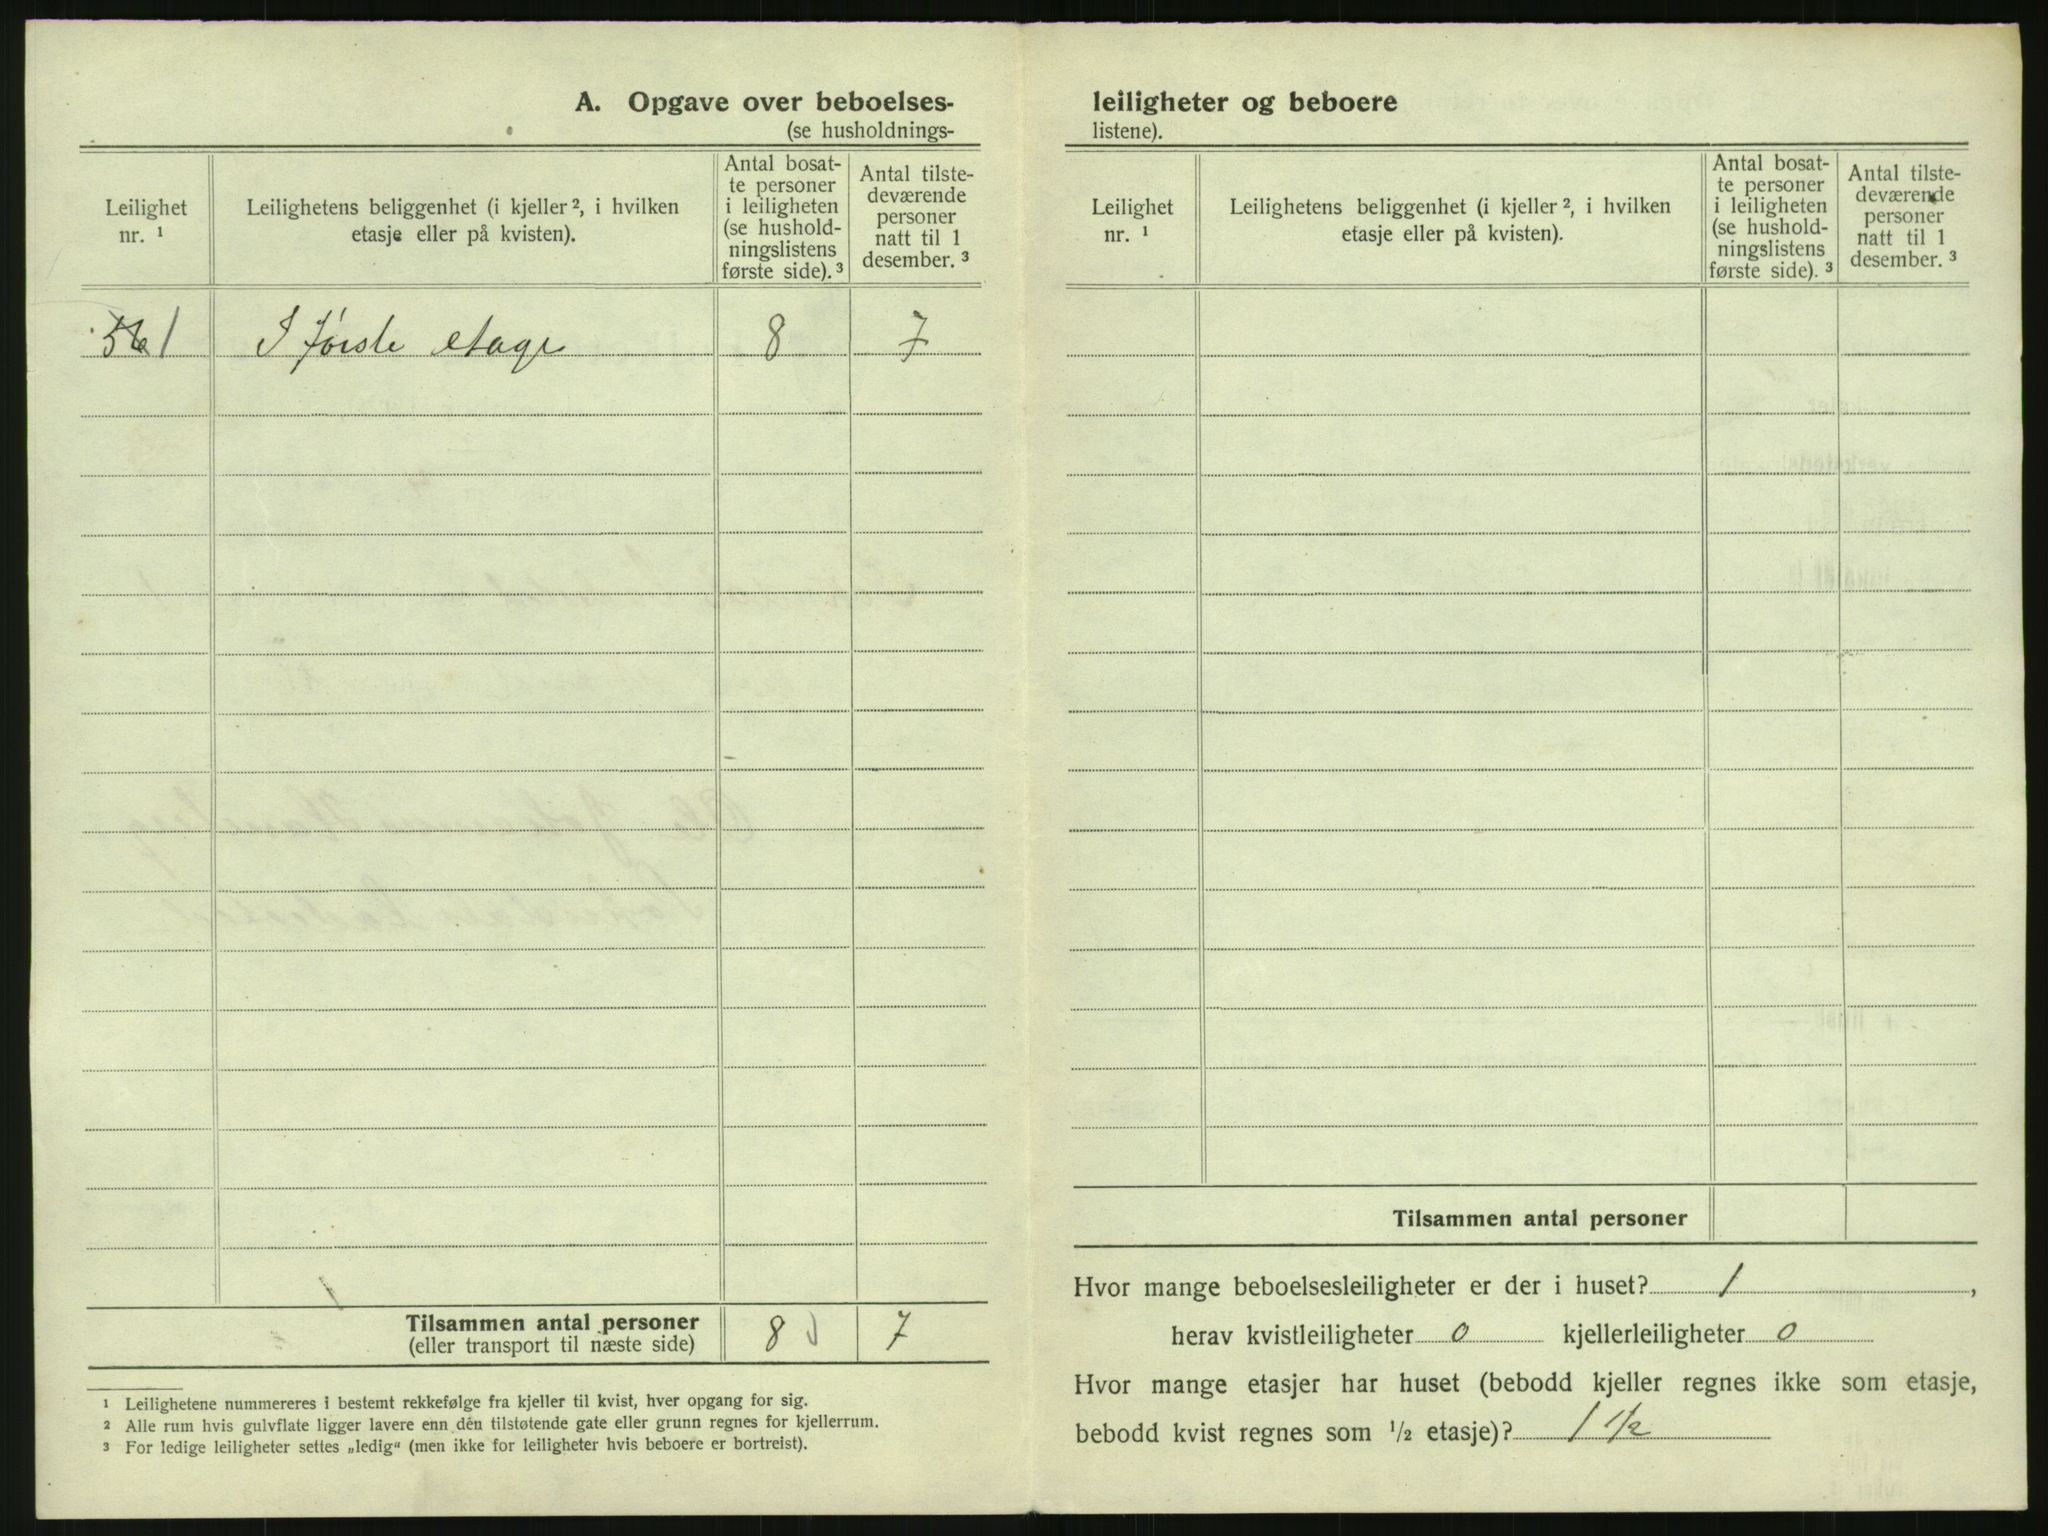 A. Opgave over beboelses-
(se husholdnings-
Leilighet nr. ¹
Leilighetens beliggenhet (i kjeller ², i hvilken etasje eller på kvisten).
Antal bosat-te personer i leiligheten (se hushold-ningslistens første side). ³
Antal tilste-deværende personer natt til 1 desember. ³
1 I første etage 8 7
Tilsammen antal personer 8 7
(eller transport til næste side)
¹ Leilighetene nummereres i bestemt rekkefølge fra kjeller til kvist, hver opgang for sig.
² Alle rum hvis gulvflate ligger lavere enn den tilstøtende gate eller grunn regnes for kjellerrum.
³ For ledige leiligheter settes „ledig“ (men ikke for leiligheter hvis beboere er bortreist).
leiligheter og beboere
listene).
Leilighet nr. ¹
Leilighetens beliggenhet (i kjeller ², i hvilken etasje eller på kvisten).
Antal bosat-te personer i leiligheten (se hushold-ningslistens første side). ³
Antal tilste-deværende personer natt til 1 desember. ³
Tilsammen antal personer
Hvor mange beboelsesleiligheter er der i huset? 1,
herav kvistleiligheter 0 kjellerleiligheter 0
Hvor mange etasjer har huset (bebodd kjeller regnes ikke som etasje,
bebodd kvist regnes som ½ etasje)? 1 ½